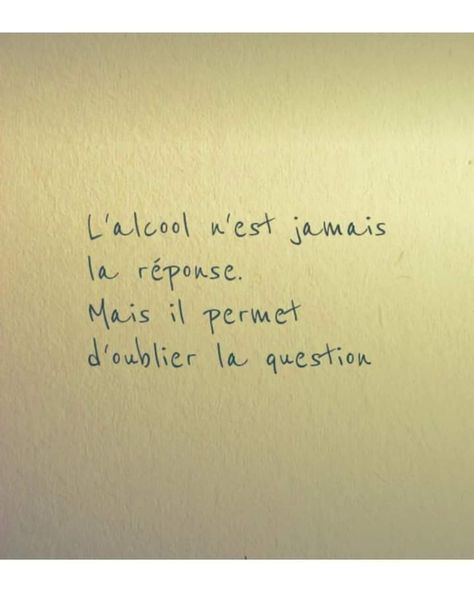 L'alcool n'est jamais
la réponse.
Mais il permet
d'oublier la question